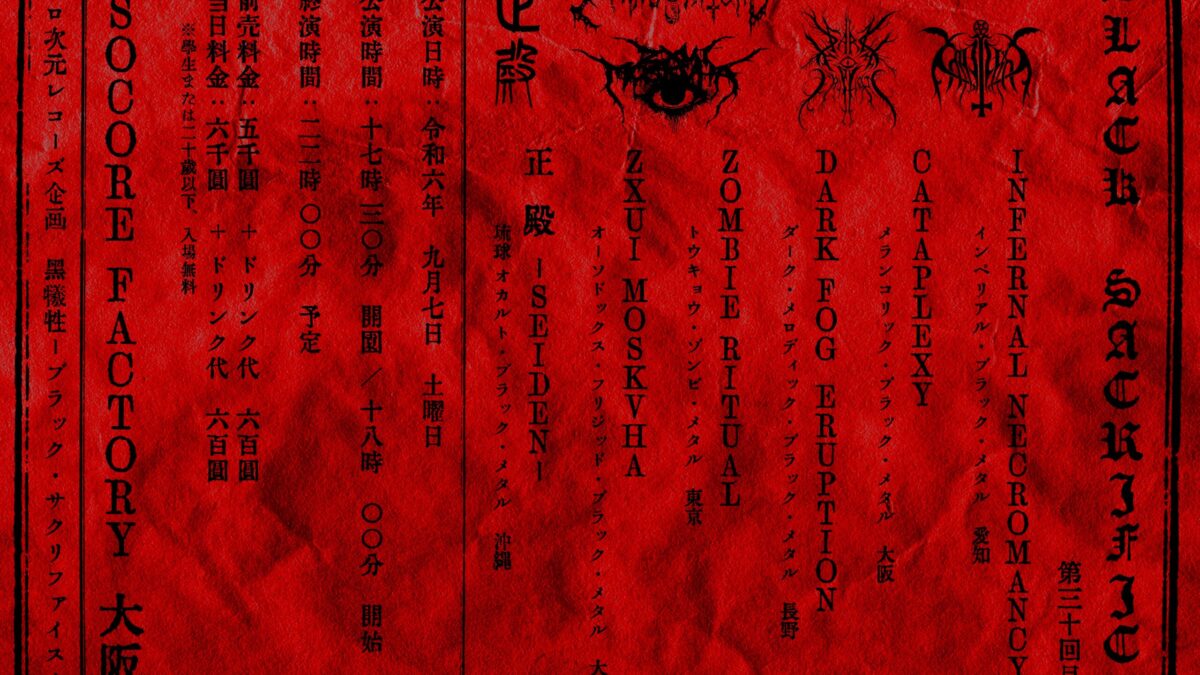 BLACK SACRIFIC
第三十回
INFERNAL NECROMANCY
インペリアル・ブラック・メタル 愛知
CATAPLEXY
メランコリック・ブラック・メタル 大阪
DARK FOG ERUPTION
ダーク・メロディック・ブラック・メタル 長野
ZOMBIE RITUAL
トウキョウ・ゾンビ・メタル 東京
ZXUI MOSKVHA
オーソドックス・フリジッド・ブラック・メタル 大
正殿 -SEIDEN-
琉球オカルト・ブラック・メタル 沖縄
公演日時：令和六年 九月七日 土曜日
公演時間：十七時三〇分 開園／十八時 〇〇分 開始
終演時間：二二時 〇〇分 予定
前売料金：五千圓 ＋ドリンク代 六百圓
当日料金：六千圓 ＋ドリンク代 六百圓
※學生または二十歳以下、入場無料
SOCORE FACTORY 大阪
ロ次元レコーズ企画 黑犠牲-ブラック・サクリファイス